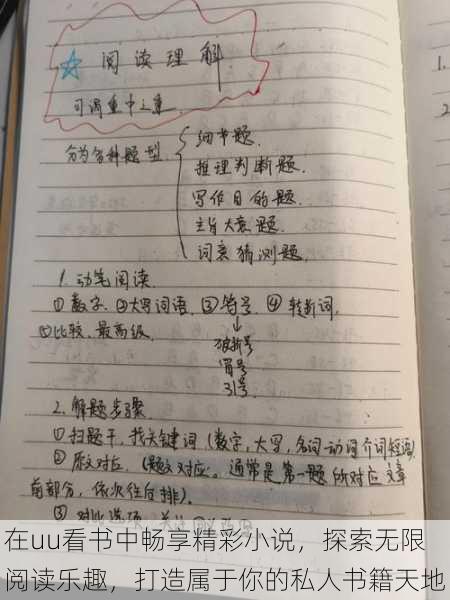 阅读理解
可谓重中之重
分为各种题型
细节题.
推理判断题.
写作目的题.
主旨大意题.
词义猜测题.
1. 动笔阅读.
①数字. ②大写词语. ③符号. ④转折词.
⑤比较、最高级.
破折号
冒号
引号.
2. 解题步骤
①扫题干, 找关键词 (数字, 大写, 名词 动词 介词短语)
②原文对应. (题文对应。通常是第一题所对应文章
前部分, 依次往后排).
③对比选项.
在uu看书中畅享精彩小说，探索无限
阅读乐趣，打造属于你的私人书籍天地